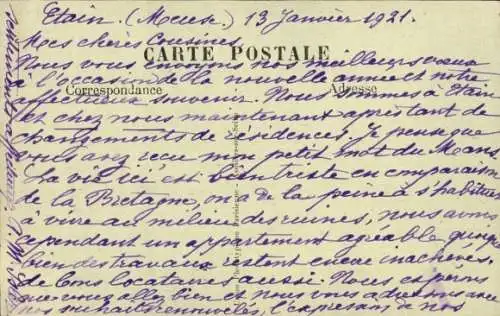 Etain. (Meuse.) 13 Janvier 1921.
Mes chères Cousines
CARTE POSTALE
Nous vous envoyons nos meilleurs vœux
à l'occasion de la nouvelle année et notre
Correspondance
Adresse
affectueux souvenir. Nous sommes à Etain
et chez nous maintenant après tant de
changements de résidences. Je pense que
vous avez reçu mon petit mot du Mans
La vie ici est bien triste en comparaison
de la Bretagne, on a de la peine à s'habituer
à vivre au milieu des ruines, nous avons
cependant un appartement agréable quoique
bien des travaux restent encore inachevés,
de bons locataires aussi. Nous espérons
que vous allez bien et nous vous adressons avec
nos souhaits renouvelés, l'expression de nos